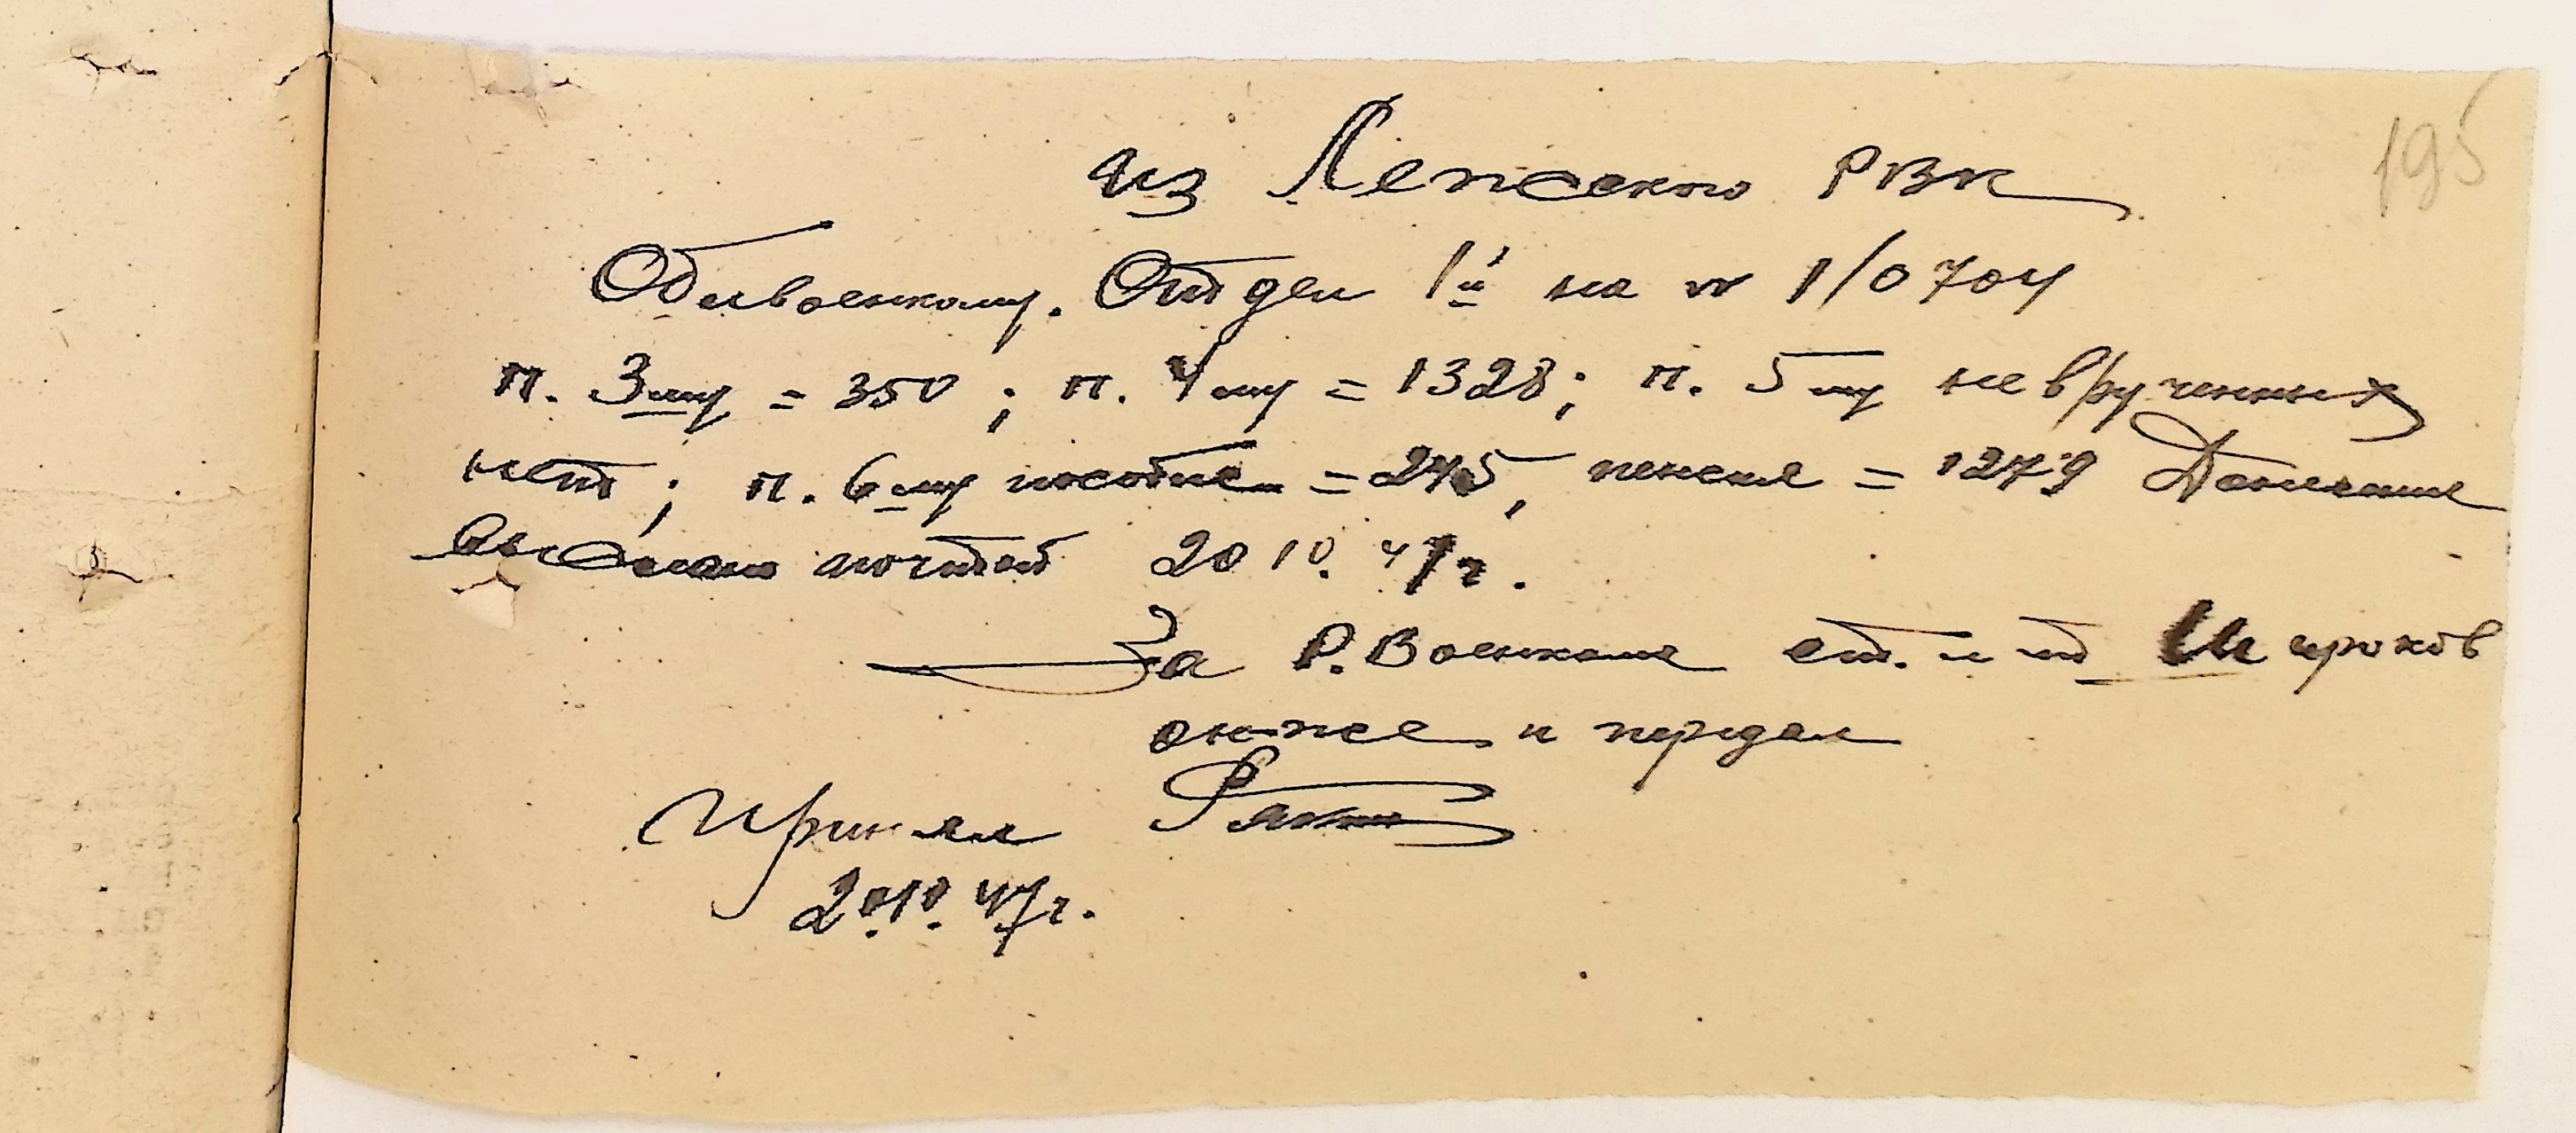 195
из Лежского РВК
Облвоенкому. Отдел 1й на № 1/0704
п. 3му = 350; п. 4му = 1328; п. 5му не врученных
нет; п. 6му пособие = 245, пенсия = 1279 Донесение
выслано почтой 20 10. 47г.
За Р. Военкома ст. л-т Широков
он-же и передал
Принял
20.10. 47г.